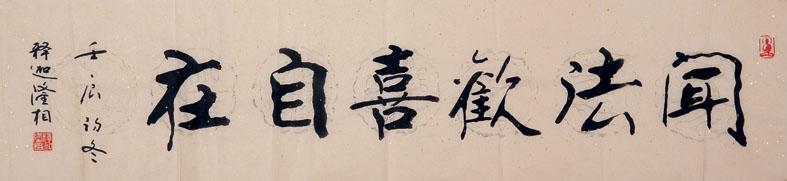 聞法歡喜自在
壬辰初冬
釋迦隆相